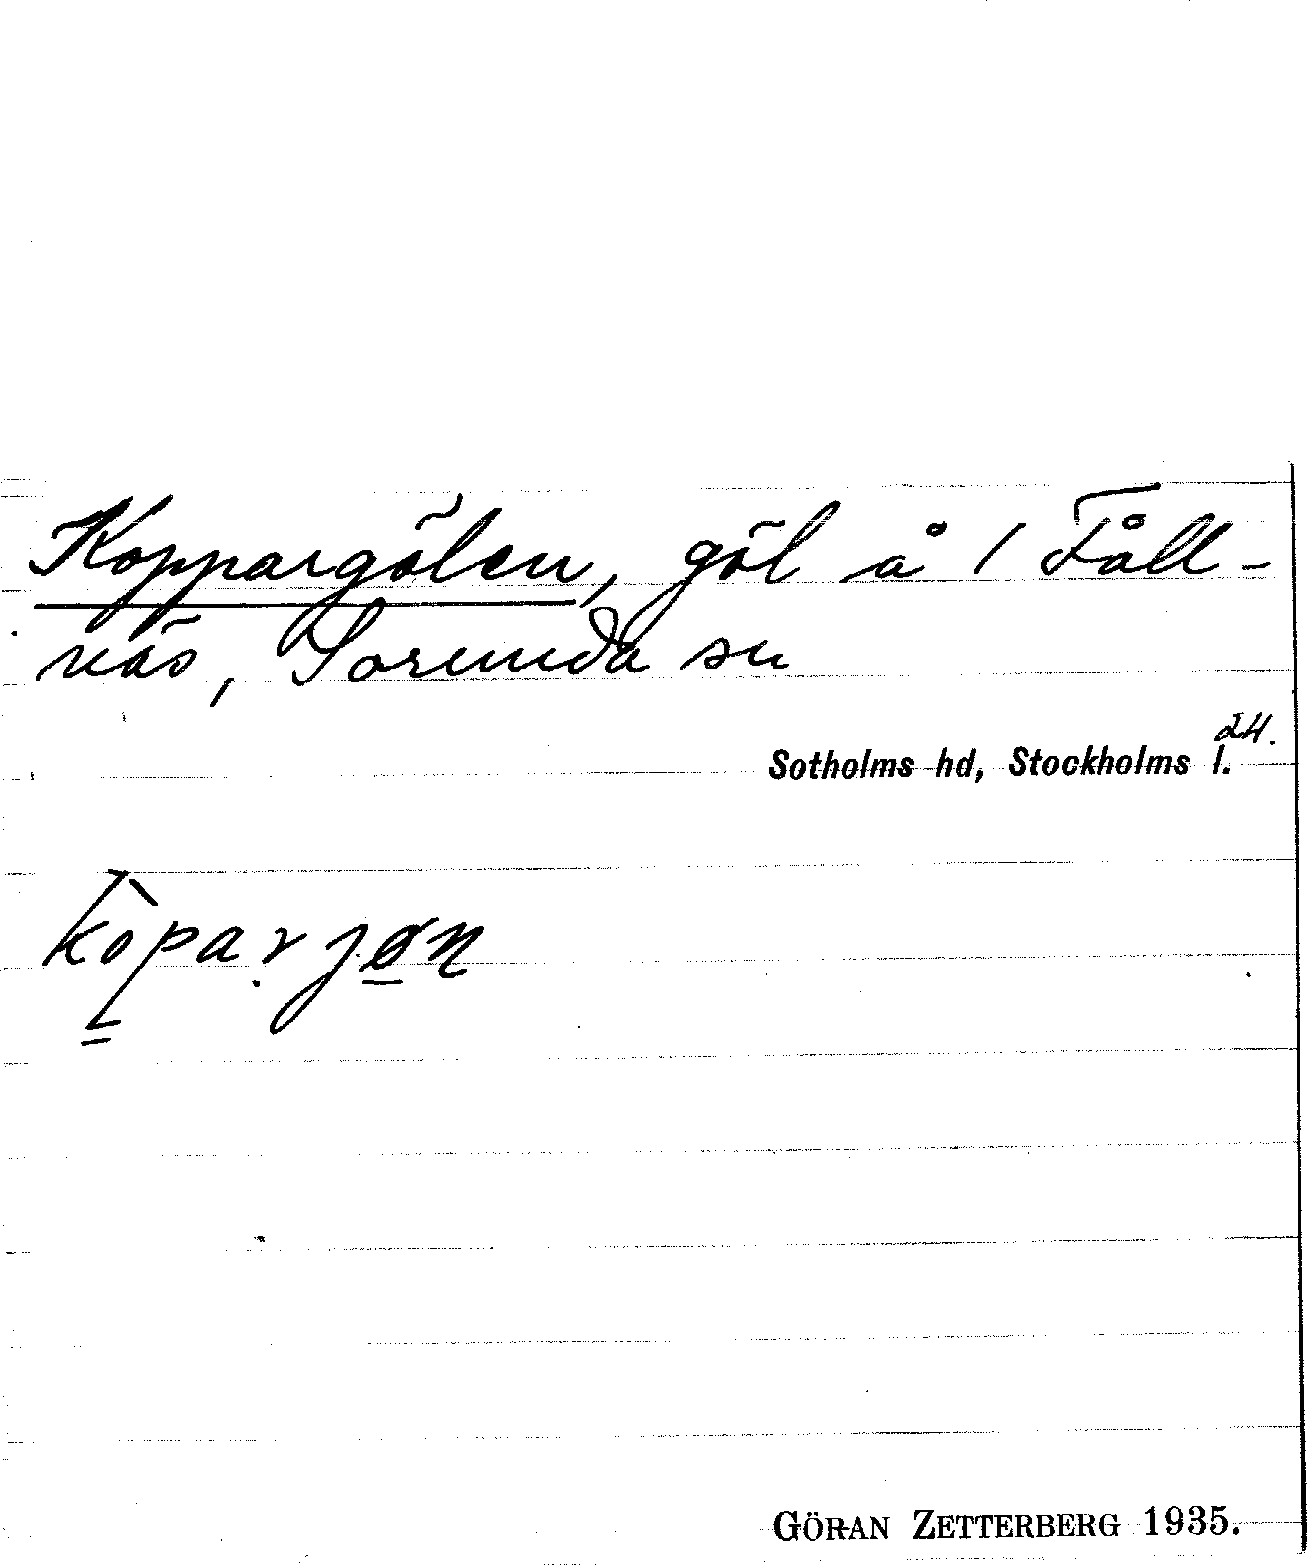 Koppargölen, göl å 1 Fåll-
näs, Sorunda sn
24.
Sotholms hd, Stockholms l.
kòparjøn
GÖRAN ZETTERBERG 1935.